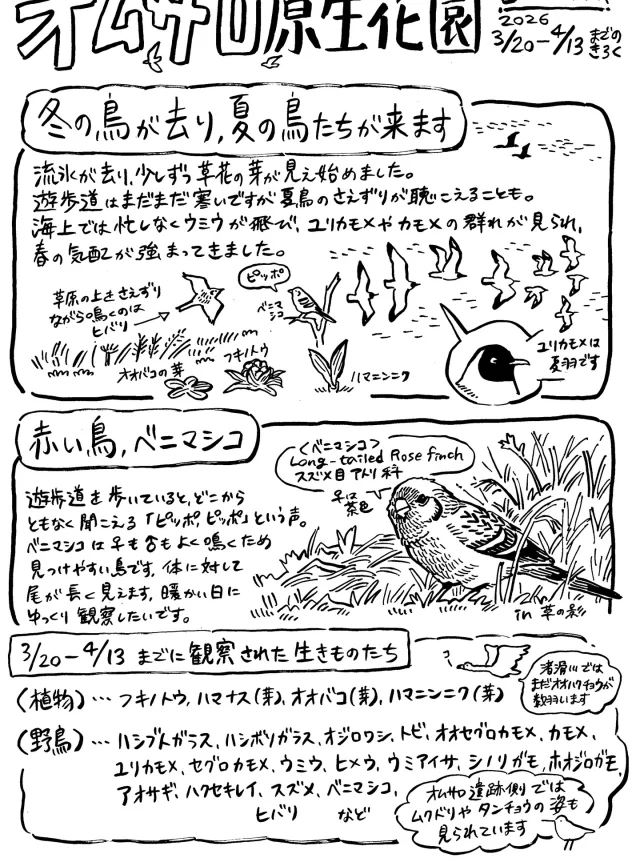 オムサロ原生花園
2026
3/20-4/13 までの
きろく
冬の鳥が去り,夏の鳥たちが来ます
流氷が去り,少しずつ草花の芽が見え始めました。
遊歩道はまだまだ寒いですが夏鳥のさえずりが聴こえることも。
海上では忙しなくウミウが飛び、ユリカモメやカモメの群れが見られ、
春の気配が強まってきました。
草原の上をさえずり
ながら鳴くのは
ヒバリ
ピッポ
ベニマ
シコ
オオバコの芽
フキノトウ
ハマニンニク
ユリカモメは
夏羽です
赤い鳥,ベニマシコ
遊歩道を歩いていると,どこから
ともなく聞こえる「ピッポピッポ」という声。
ベニマシコは♀も♂もよく鳴くため
見つけやすい鳥です。体に対して
尾が長く見えます。暖かい日に
ゆっくり観察したいです。
<ベニマシコ>
Long-tailed Rose finch
スズメ目アトリ科
♀は
茶色
in 草の影
3/20-4/13 までに観察された生きものたち
(植物)…フキノトウ、ハマナス(芽)、オオバコ(芽)、ハマニンニク(芽)
(野鳥)…ハシブトガラス、ハシボソガラス、オジロワシ、トビ、オオセグロカモメ、カモメ、
ユリカモメ、セグロカモメ、ウミウ、ヒメウ、ウミアイサ、シノリガモ、ホオジロガモ、
アオサギ、ハクセキレイ、スズメ、ベニマシコ、
ヒバリ など
渚滑川では
まだオオハクチョウが
数羽います
オムサロ遺跡側では
ムクドリやタンチョウの姿も
見られています